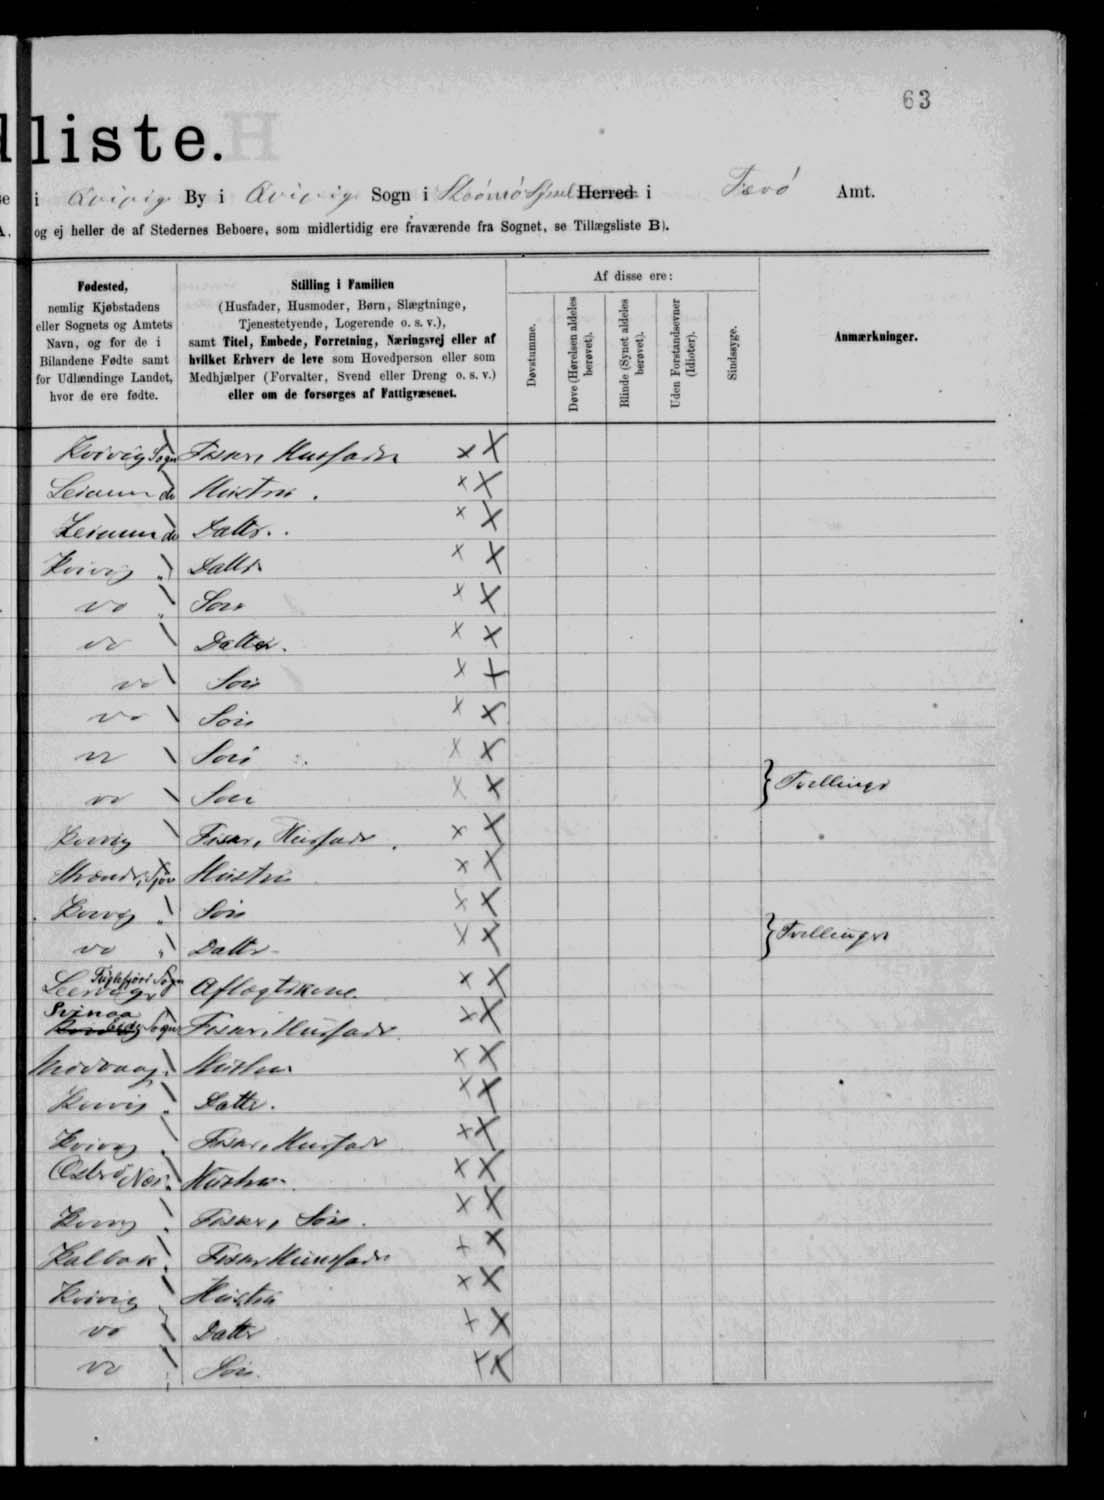 63
liste.
i Qvivig By i Qvivig Sogn i Strömö Syssel Herred i Færö Amt.
og ej heller de af Stedernes Beboere, som midlertidig ere fraværende fra Sognet, se Tillægsliste B).
Fødested,
nemlig Kjøbstadens
eller Sognets og Amtets
Navn, og for de i
Bilandene Fødte samt
for Udlændinge Landet,
hvor de ere fødte.
Stilling i Familien
(Husfader, Husmoder, Børn, Slægtninge,
Tjenestetyende, Logerende o. s. v.),
samt Titel, Embede, Forretning, Næringsvej eller af
hvilket Erhverv de leve som Hovedperson eller som
Medhjælper (Forvalter, Svend eller Dreng o. s. v.)
eller om de forsørges af Fattigvæsenet.
Af disse ere:
Døvstumme.
Døve (Hørelsen aldeles
berøvet).
Blinde (Synet aldeles
berøvet).
Uden Forstandsevner
(Idioter).
Sindssyge.
Anmærkninger.
Kvivig Sogn Fisker, Husfader x X
Leinum do Hustru. x X
Leinum do Datter. x X
Kvivig " Datter x X
do " Søn x X
do Datter. x X
do Søn x X
do Søn x X
do Søn x X
do Søn x X } Tvillinger
Kvivig Fisker, Husfader. x X
Hustru x X
Kvivig " Søn x X
do " Datter x X } Tvillinger
Fuglefjord Sogn
Leervig Aflægtskone x X
Svinaa
Sogn Fisker, Husfader x X
Hustru x X
Kvivig " Datter. x X
Kvivig Fisker, Husfader x X
Østerø Nes. Hustru x X
Kvivig Fisker, Søn. x X
Kalbak Fisker Huusfader x X
Kvivig Hustru x X
do Datter x X
do Søn. x X